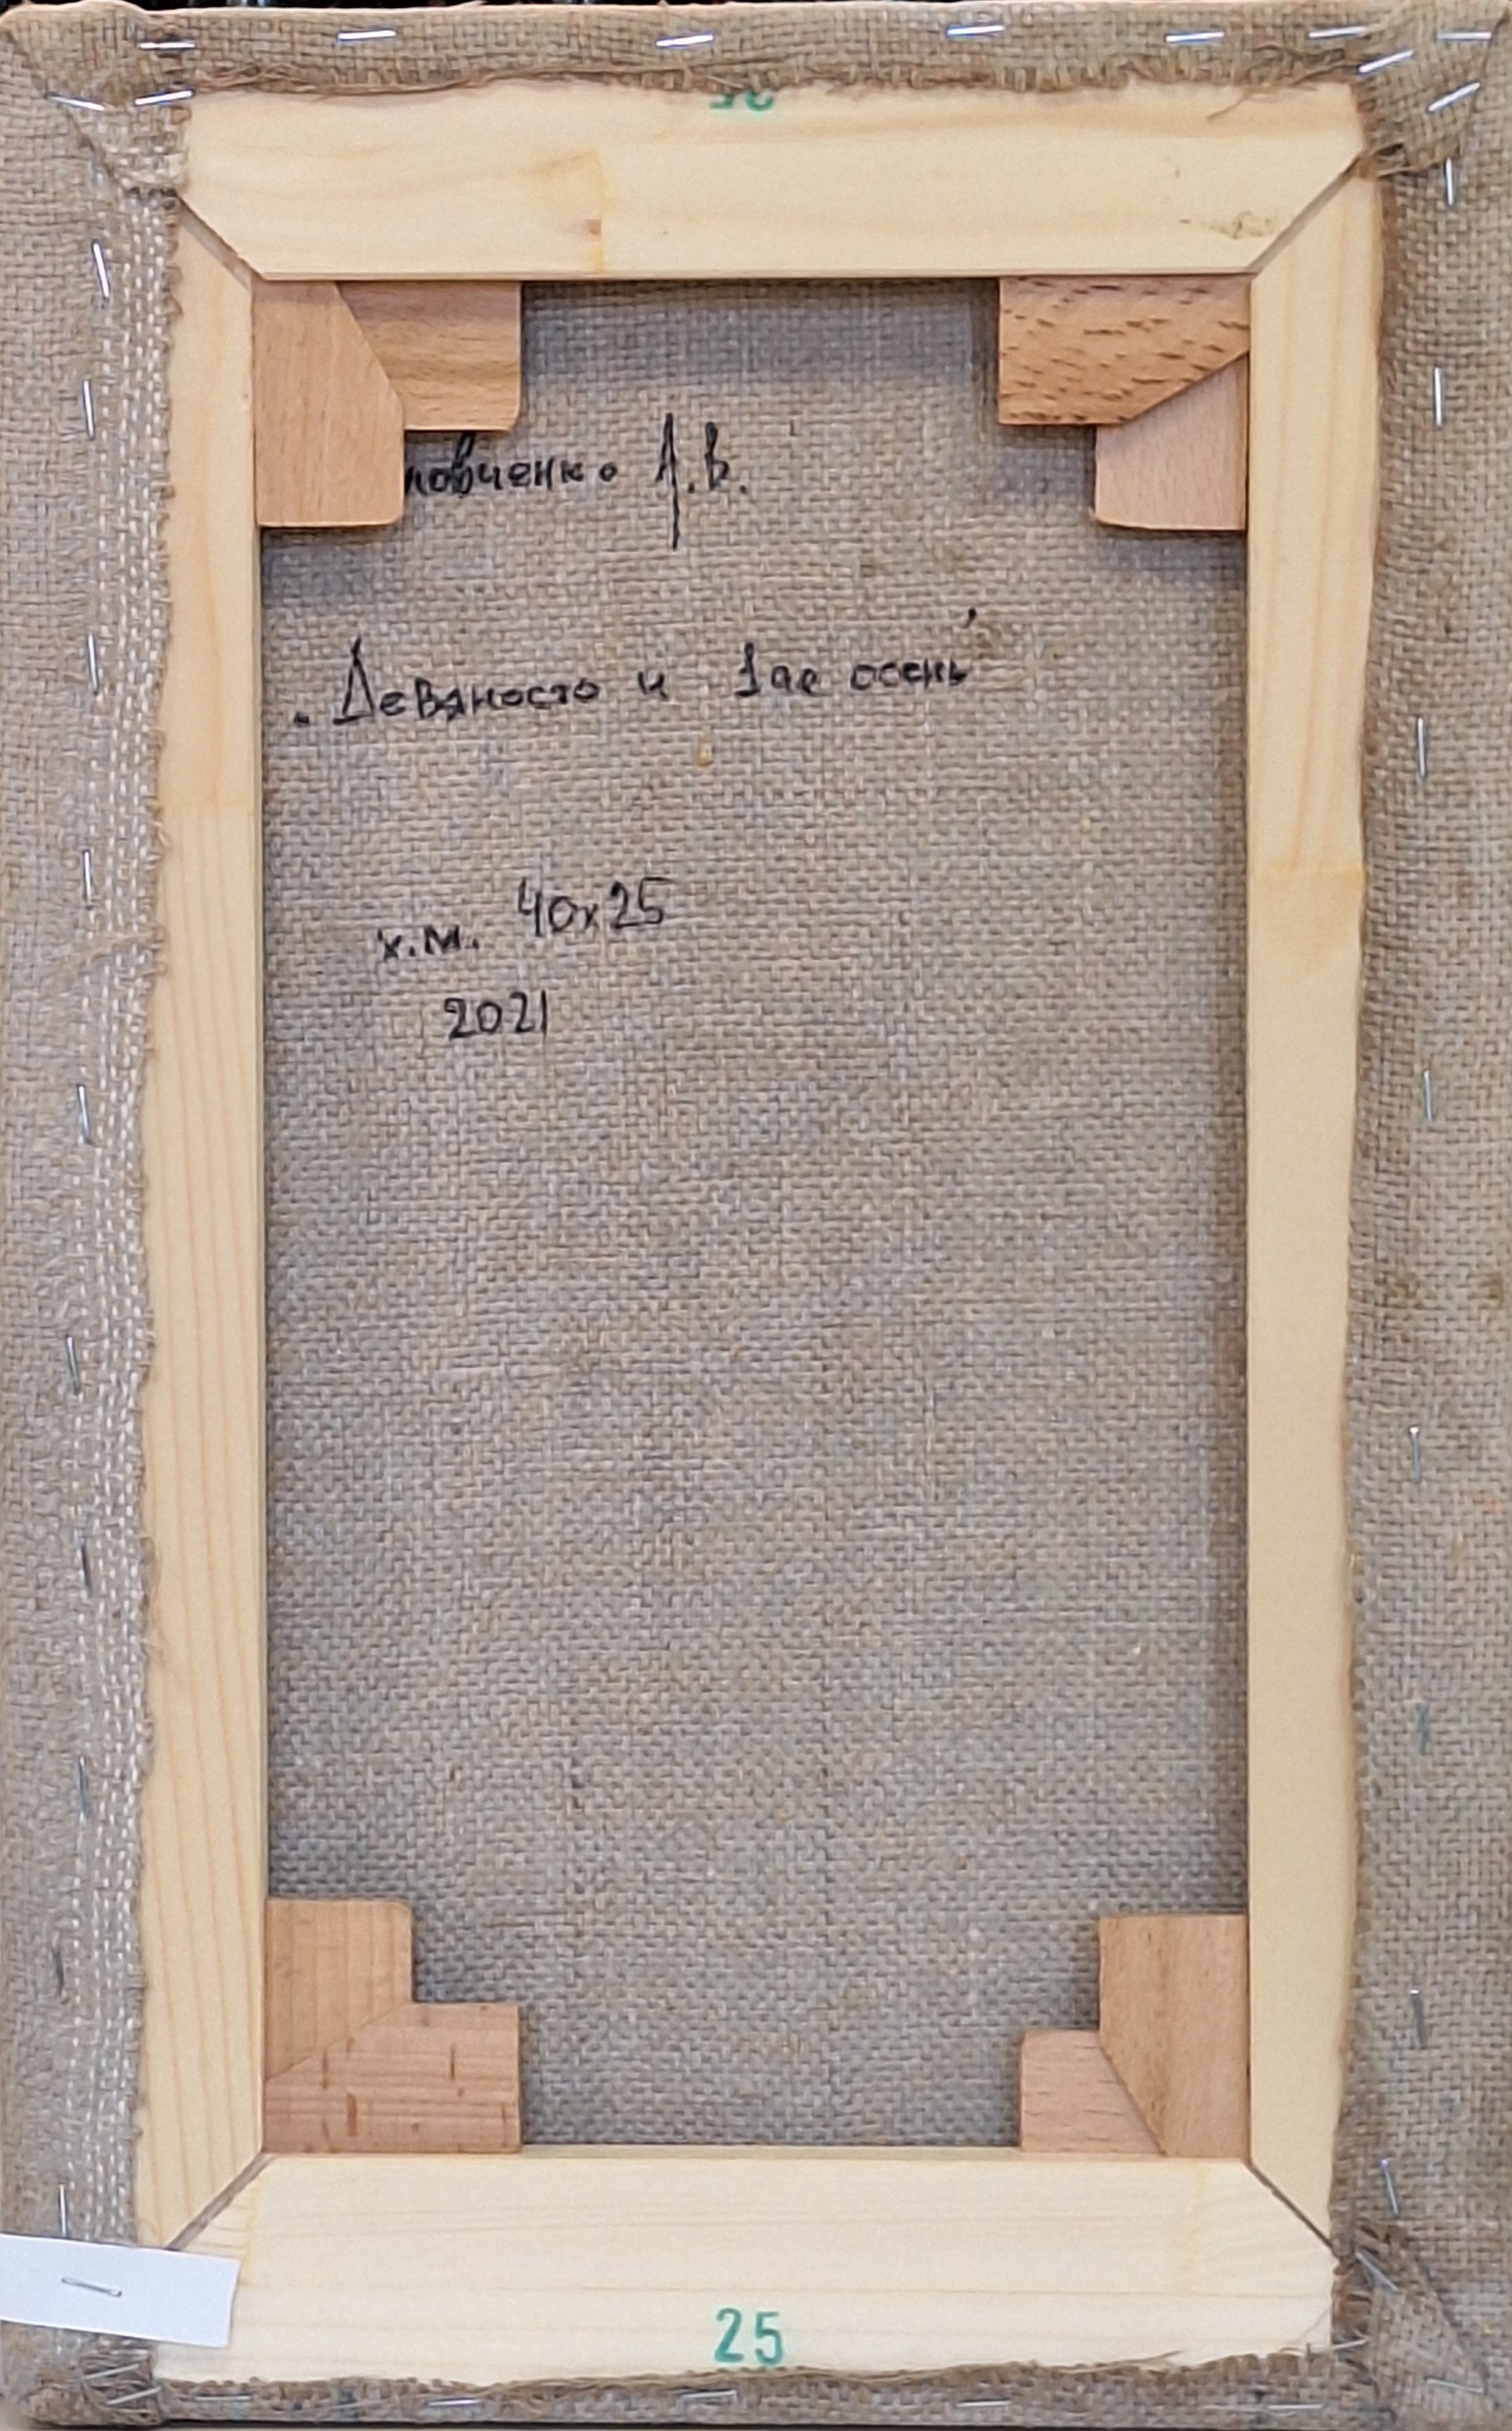 ловченко А.В.
„Девяносто и 1ае осень"
х.м. 40х25
2021
25